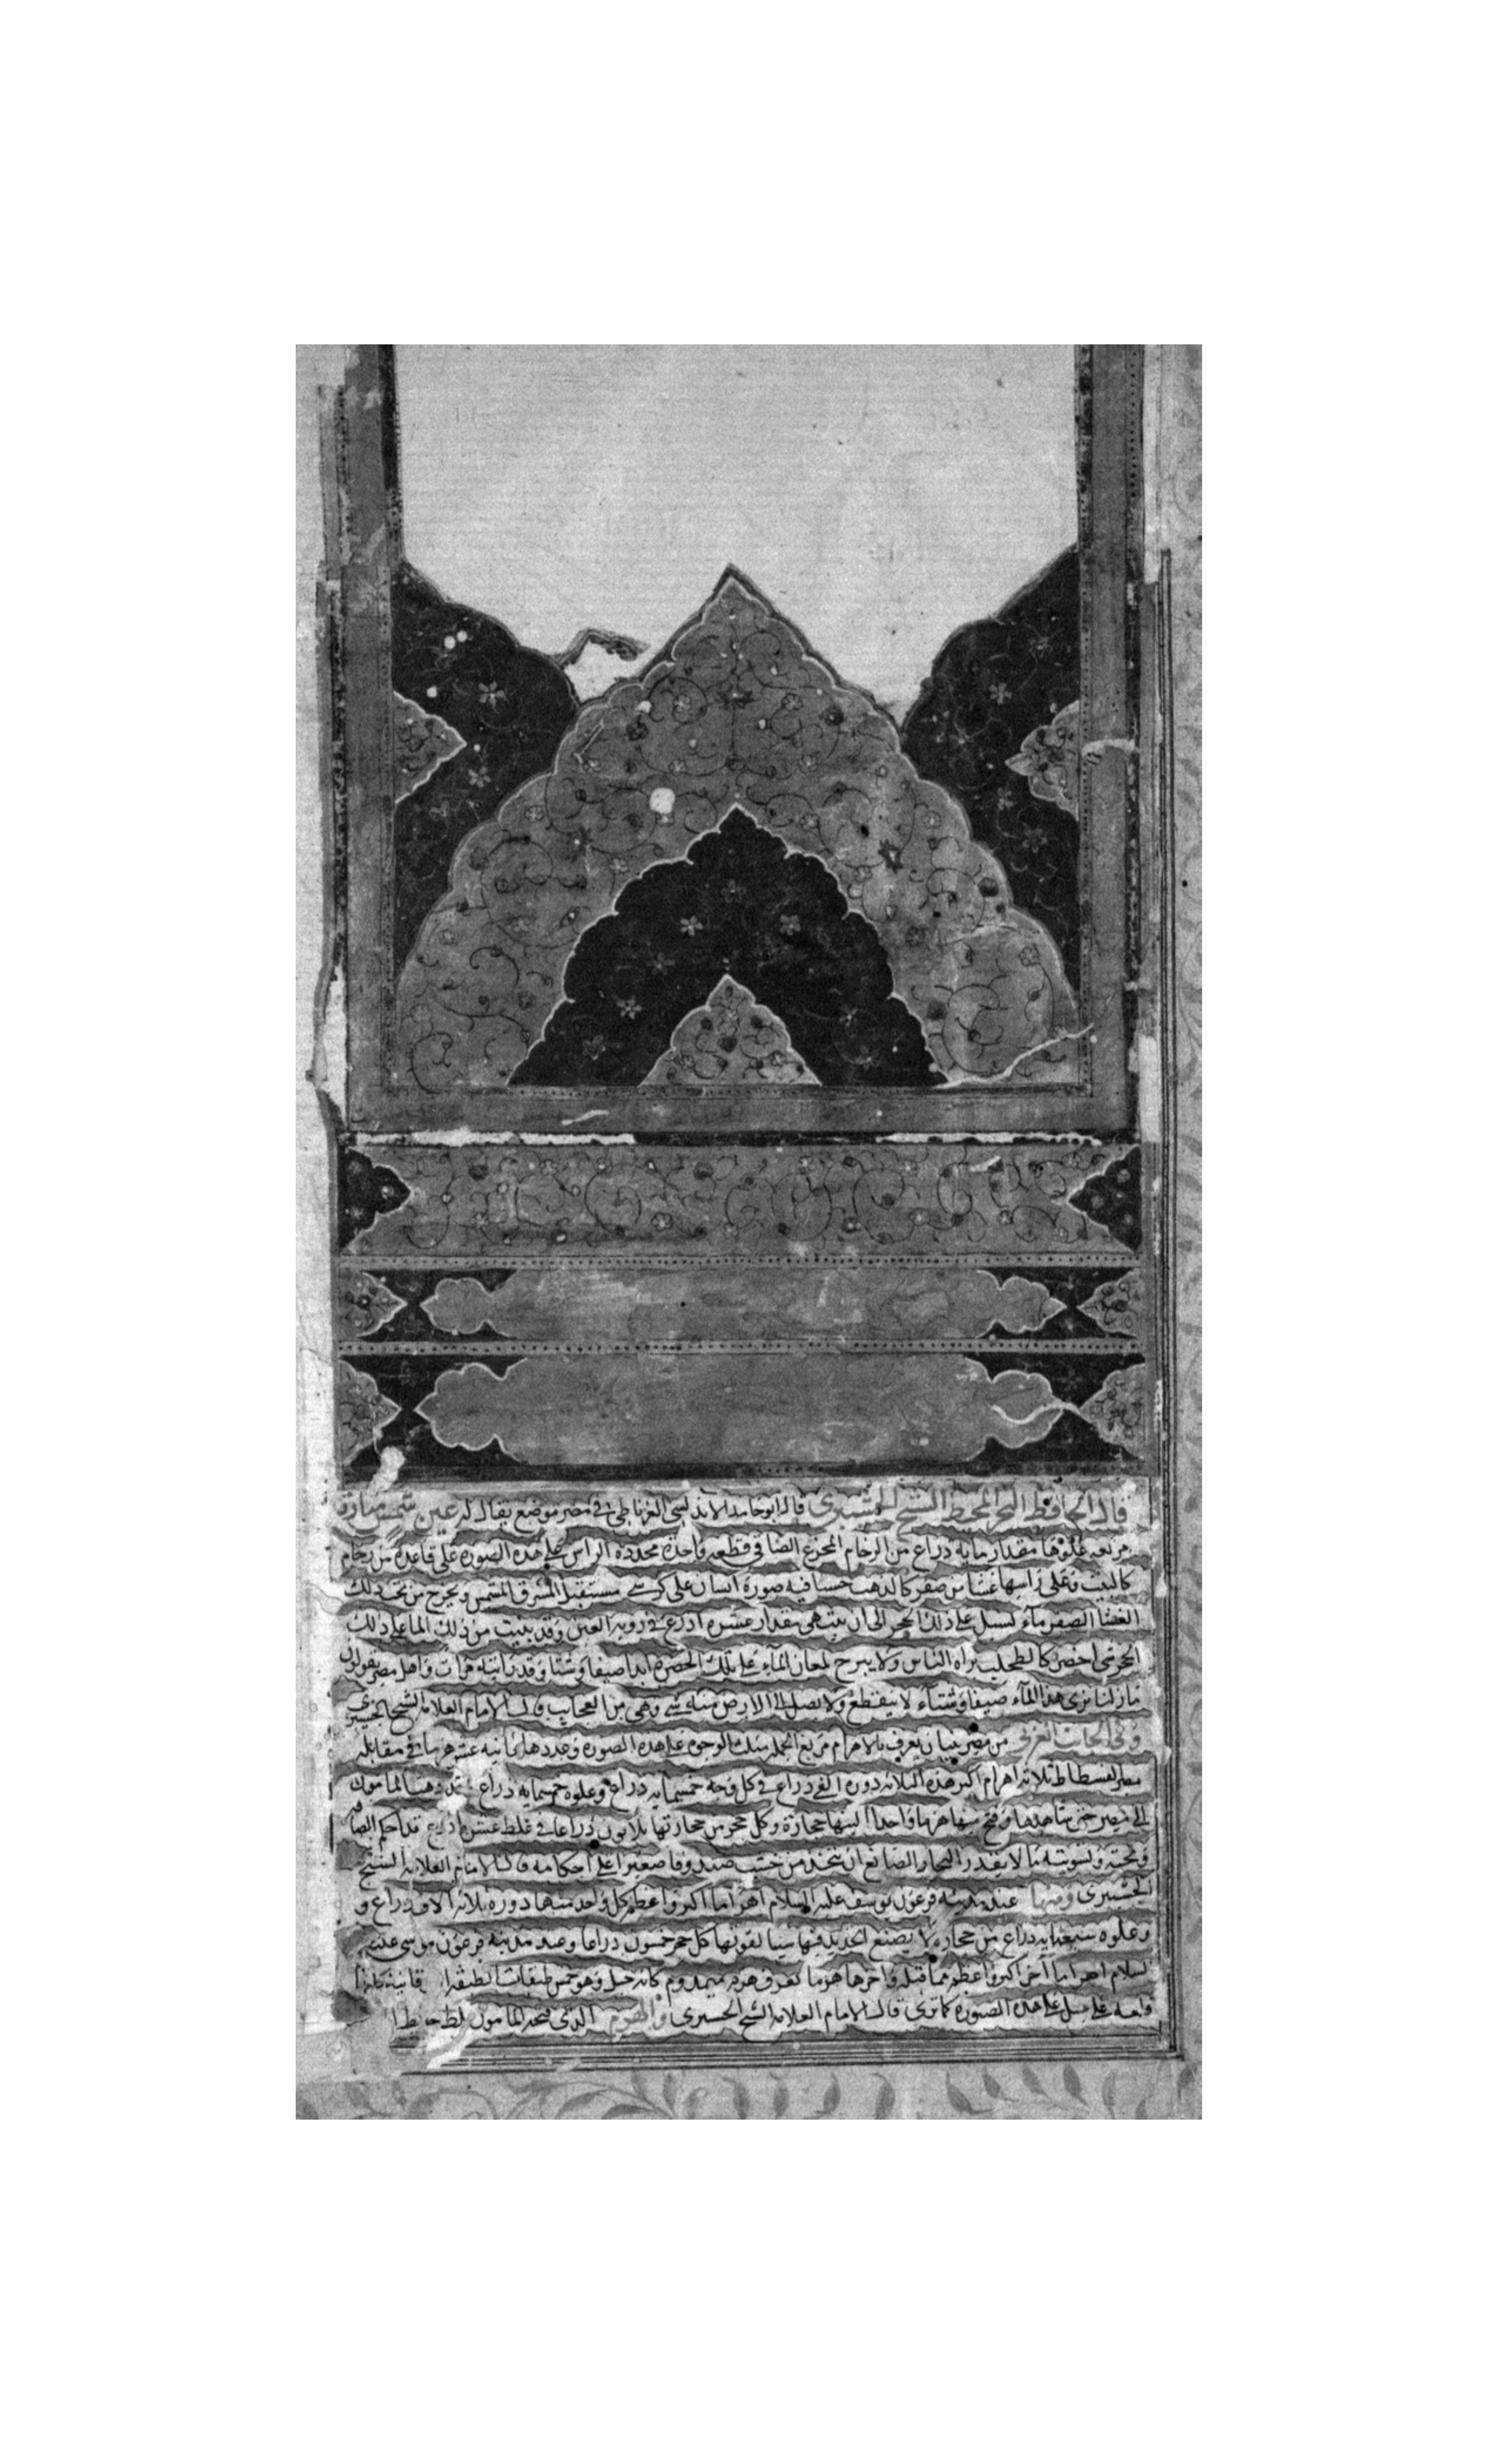 قال الحافظ البحر المحيط الشيخ الحشبري قال ابو حامد الاندلسي الغرناطي في مصر موضع يقال له عين شمس منارة
مربعه علوها مقدار مايه ذراع من الرخام المجزع الصافي قطعه واحدة محدده الراس على هذه الصوره على قاعده من رخام
كالبيت وعلى راسها غشا من صفر كالذهب حسنا فيه صورة انسان على كرسي مستقبل المشرق الشمس ويخرج من تحت ذلك
الغشا الصفر ماء يسيل على ذلك الحجر الى ان ينتهي مقدار عشره اذرع في روية العين وقد ينبت من ذلك الما على ذلك
الحجر شي اخضر كالطحلب يراه الناس ولا يبرح لمعان الماء على تلك الخضره ابدا صيفا وشتا وقد رايتاه مرات واهل مصر يقولون
مازلنا نرى هذا الماء صيفا وشتاء لا ينقطع ولا يصل الى الارض منه شي وهي من العجايب قال الامام العلامه الشيخ الحشبري
وفي الجانب الغربي من مصر بنيان يعرف بالاهرام مربع الجمله مثلث الوجوه على هذه الصوره وعددها ثمانيه عشر هرما في مقابله
مصر الفسطاط ثلاثه اهرام اكبر هذه الثلاثه دوره الفي ذراع في كل وجه خمسمايه ذراع وعلوه خمسمايه ذراع المامون
الى مصر حتى شاهدها وفتح منها هرما واحدا حجارة وكل حجر من حجارتها ثلاثون ذراعا في غلظ عشرة اذرع قد احكم الصاقه
ونحته وتسويته ما لا يقدر النجار الصانع ان يتخذ من خشب صندوقا صغيرا على احكامه قال الامام العلامه الشيخ
الحشبري ومنها عند مدينه فرعون يوسف عليه السلام اهراما اكبر واعظم كل واحد منها دوره ثلاثه الاف ذراع و
وعلوه سبعمايه ذراع من حجارة لا يصنع الحديد فيها شيا لقوتها كل حجر خمسون ذراعا وعند مدينه فرعون موسى عليه
السلام اهراما اخر اكبر واعظم مما قبله واخرها هرما يعرف هرم ميدوم كانه جبل وهو خمس طبقات
قلعه على جبل على هذه الصوره كما ترى قال الامام العلامه الشيخ الحشبري والهرم الذي فتحه المامون